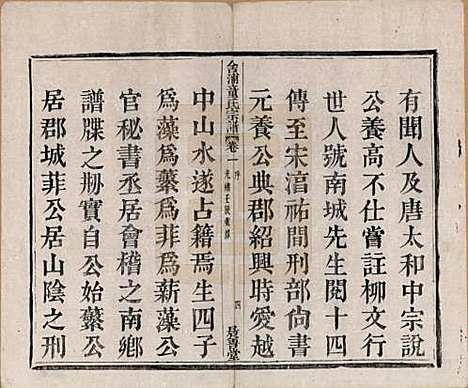 有聞人及唐太和中宗說
公養高不仕嘗註柳文行
世人號南城先生閱十四
傳至宋淯祐間刑部尙書
元養公典郡紹興時愛越
會浦童氏宗譜 卷一 序 四
中山水遂占籍焉生四子
爲藻爲蘩爲菲爲薪藻公
官秘書丞居會稽之南鄕
譜牒之刱實自公始蘩公
居郡城菲公居山陰之刑